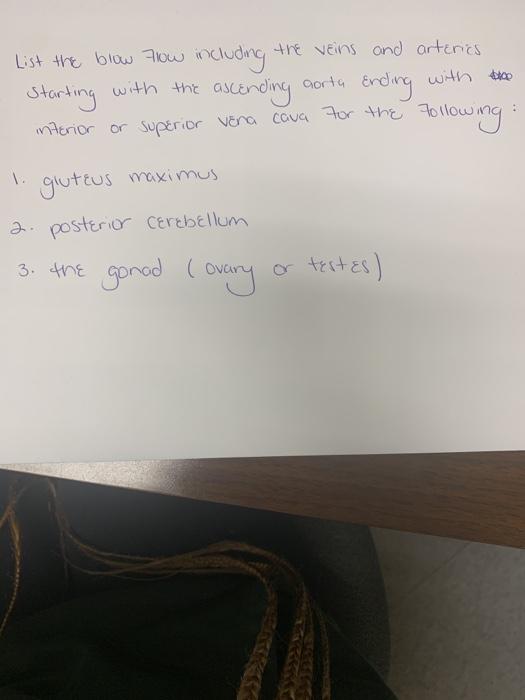 List the blow flow including the veins and arteries
starting with the ascending aorta ending with
inferior or superior vena cava for the following:
1. gluteus maximus
2. posterior cerebellum
3. the gonad (ovary or testes)